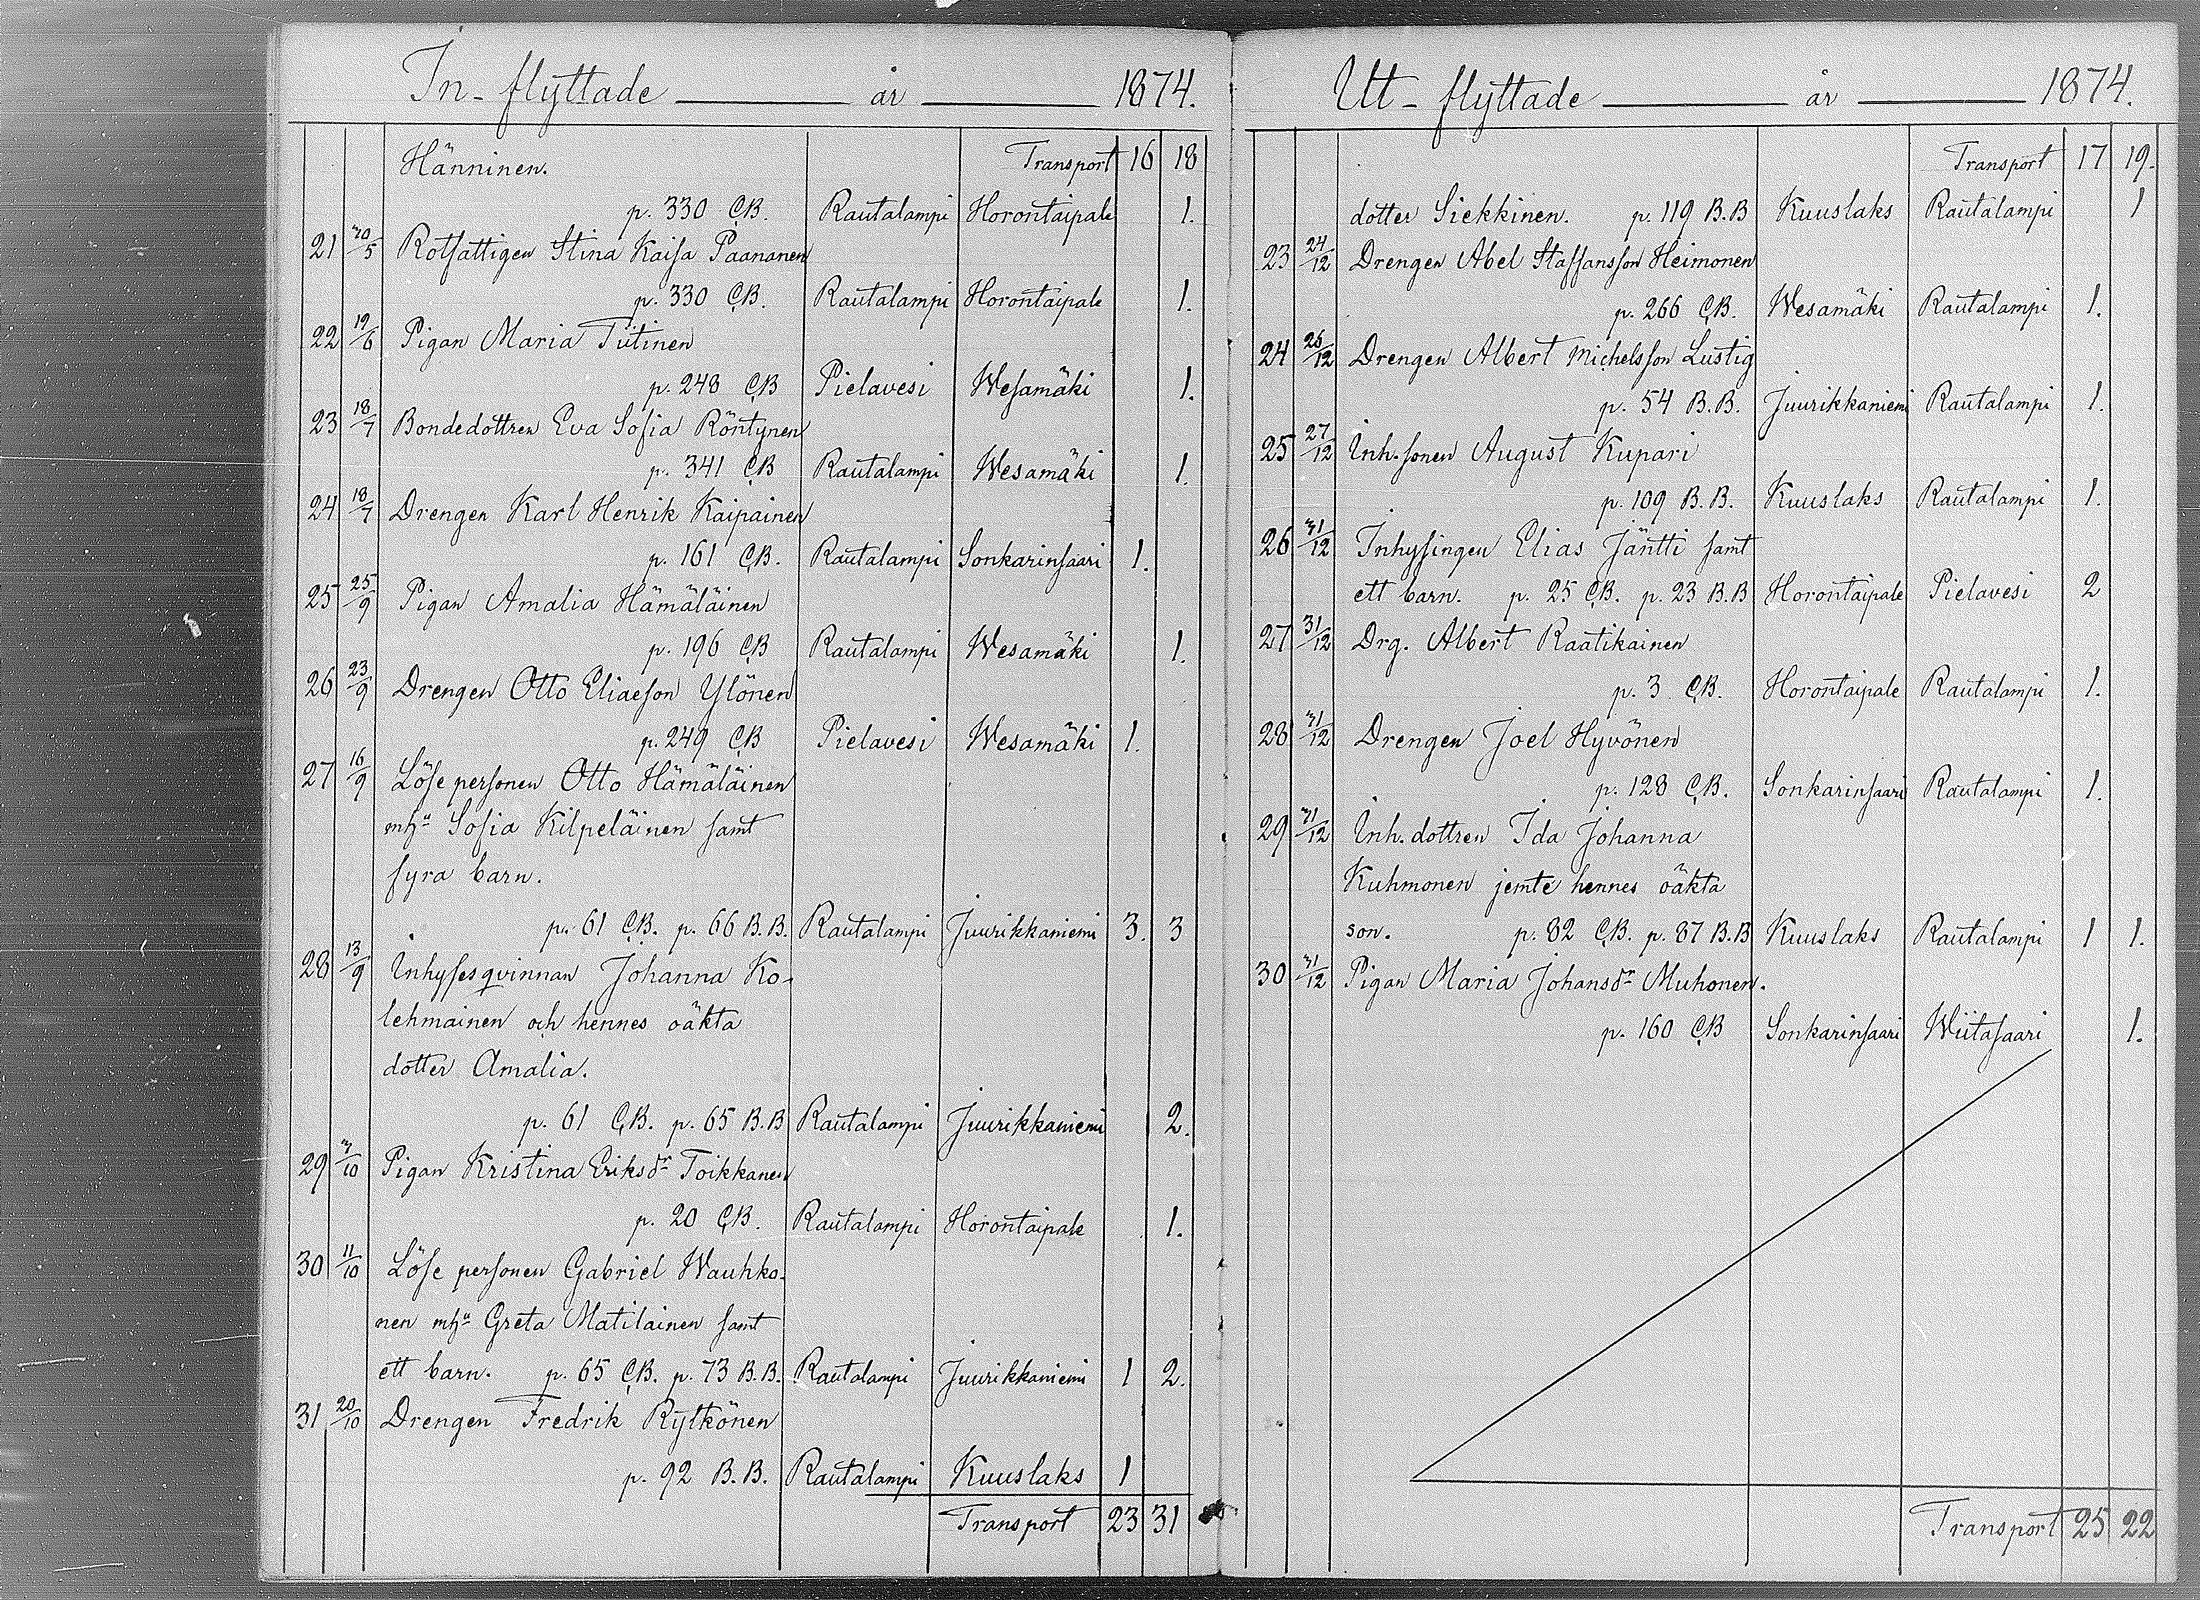 In-flyttade år 1874.
Hänninen. Transport 16 18
p. 330 C.B. Rautalampi Horontaipale 1.
21 30/5 Rotfattigen Stina Kaisa Paananen
p. 330 C.B. Rautalampi Horontaipale 1.
22 19/6 Pigan Maria Tiitinen
p. 248 C.B Pielavesi Wesamäki 1.
23 18/7 Bondedottren Eva Sofia Röntynen
p. 341 C.B Rautalampi Wesamäki 1.
24 18/7 Drengen Karl Henrik Kaipainen
p. 161 C.B. Rautalampi Sonkarinsaari 1.
25 25/9 Pigan Amalia Hämäläinen
p. 196 C.B Rautalampi Wesamäki 1.
26 23/9 Drengen Otto Eliaeson Ylönen
p. 249 C.B Pielavesi Wesamäki 1.
27 16/9 Löse personen Otto Hämäläinen
mhu Sofia Kilpeläinen samt
fyra barn.
p. 61 C.B. p. 66 B.B. Rautalampi Juurikkaniemi 3. 3
28 13/9 Inhysesqvinnan Johanna Ko-
lehmainen och hennes oäkta
dotter Amalia.
p. 61 C.B. p. 65 B.B Rautalampi Juurikkaniemi 2.
29 3/10 Pigan Kristina Eriksdr Toikkanen
p. 20 C.B. Rautalampi Horontaipale 1.
30 11/10 Löse personen Gabriel Wauhko-
nen mhu Greta Matilainen samt
ett barn. p. 65 C.B. p. 73 B.B. Rautalampi Juurikkaniemi 1 2.
31 20/10 Drengen Fredrik Rytkönen
p. 92 B.B. Rautalampi Kuuslaks 1
Transport 23 31
Utt-flyttade år 1874.
Transport 17 19.
dotter Siekkinen. p. 119 B.B Kuuslaks Rautalampi 1
23 24/12 Drengen Abel Staffansson Heimonen
p. 266 C.B. Wesamäki Rautalampi 1.
24 26/12 Drengen Albert Michelsson Lustig
p. 54 B.B. Juurikkaniemi Rautalampi 1.
25 27/12 Inh.sonen August Kupari
p. 109 B.B. Kuuslaks Rautalampi 1.
26 31/12 Inhysingen Elias Jäntti samt
ett barn. p. 25 C.B. p. 23 B.B Horontaipale Pielavesi 2
27 31/12 Drg. Albert Raatikainen
p. 3 C.B. Horontaipale Rautalampi 1.
28 31/12 Drengen Joel Hyvönen
p. 128 C.B. Sonkarinsaari Rautalampi 1.
29 31/12 Inh.dottren Ida Johanna
Kuhmonen jemte hennes oäkta
son. p. 82 C.B. p. 87 B.B Kuuslaks Rautalampi 1 1.
30 31/12 Pigan Maria Johansdr Muhonen.
p. 160 C.B Sonkarinsaari Wiitasaari 1.
Transport 25 22